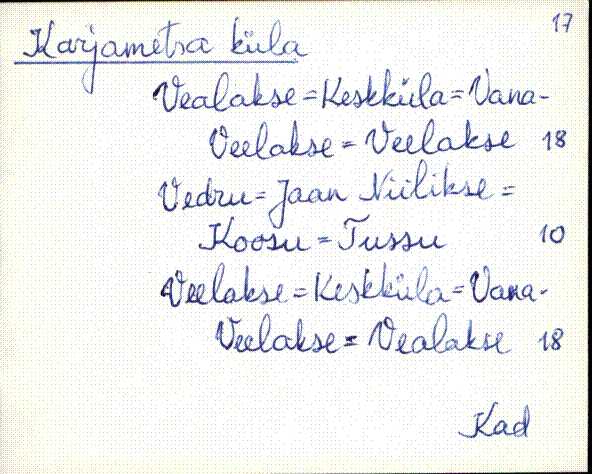 17
Karjametsa küla
Vealakse = Keskküla = Vana-
Veelakse = Veelakse 18
Vedru = Jaan Niilikse =
Koosu = Tussu 10
Veelakse = Keskküla = Vana-
Veelakse = Vealakse 18
Kad